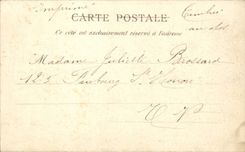 Imprimé
CARTE POSTALE
Ce côté est exclusivement réservé à l'adresse
Timbre
au dos
Madame Juliette Brossard
123 Faubourg St Honoré